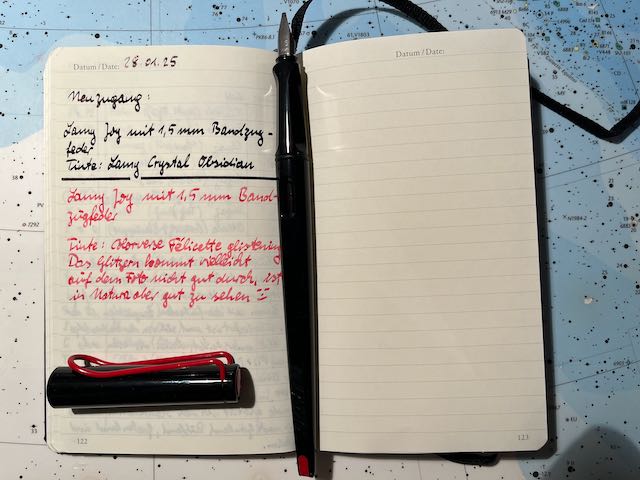 Datum / Date: 28.01.25
Neuzugang:
Lamy Joy mit 1,5 mm Bandzug-
feder
Tinte: Lamy Crystal Obsidian
Lamy Joy mit 1,5 mm Band-
zugfeder
Tinte: Colorverse Félicette glistening
Das Glitzern kommt vielleicht
auf dem Foto nicht gut durch, ist
in Natura aber gut zu sehen
122
Datum / Date:
123